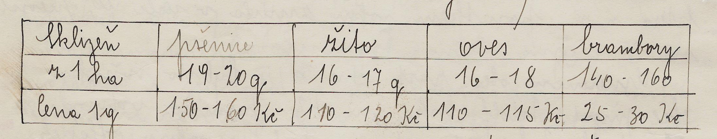 Sklizeň pšenice žito oves brambory
z 1 ha 19-20q 16-17 q 16-18 140-160
Cena 1q 150-160 Kč 110-120 Kč 110-115 Kč 25-30 Kč